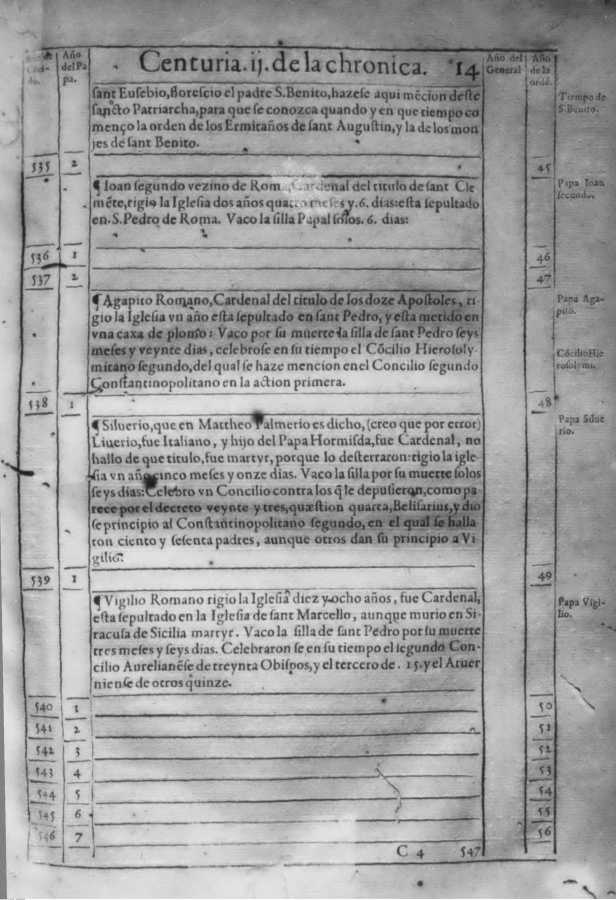 Centuria. ij. de la chronica. 14
Año
del Pa
pa.
Año del
General
Año
de la
ordē.
sant Eusebio, florescio el padre S. Benito, hazese aqui mēcion deste
sancto Patriarcha, para que se conozca quando y en que tiempo co
menço la orden de los Ermitaños de sant Augustin, y la de los mon
jes de sant Benito.
Tiempo de
S. Benito.
535 2 45
¶ Ioan segundo vezino de Roma, Cardenal del titulo de sant Cle
mēte, rigio la Iglesia dos años quatro meses y. 6. dias: esta sepultado
en. S. Pedro de Roma. Vaco la silla Papal solos. 6. dias:
Papa Ioan
segundo.
536 1 46
537 2 47
¶ Agapito Romano, Cardenal del titulo de los doze Apostoles, ri
gio la Iglesia vn año esta sepultado en sant Pedro, y esta metido en
vna caxa de plomo: Vaco por su muerte la silla de sant Pedro seys
meses y veynte dias, celebrose en su tiempo el Cōcilio Hierosoly-
mitano segundo, del qual se haze mencion en el Concilio segundo
Constantinopolitano en la action primera.
Papa Aga-
pito.
Cōcilio Hie
rosolymi.
538 1 48
¶ Siluerio, que en Mattheo Palmerio es dicho, (creo que por error)
Liuerio, fue Italiano, y hijo del Papa Hormisda, fue Cardenal, no
hallo de que titulo, fue martyr, porque lo desterraron: rigio la igle-
sia vn año cinco meses y onze dias. Vaco la silla por su muerte solos
seys dias: Celebro vn Concilio contra los q̄ le depusieron, como pa
rece por el decreto veynte y tres, quæstion quarta, Belisarius, y dio
se principio al Constantinopolitano segundo, en el qual se halla
ron ciento y sesenta padres, aunque otros dan su principio a Vi
gilio.
Papa Silue
rio.
539 1 49
¶ Vigilio Romano rigio la Iglesia diez y ocho años, fue Cardenal,
esta sepultado en la Iglesia de sant Marcello, aunque murio en Si-
racusa de Sicilia martyr. Vaco la silla de sant Pedro por su muerte
tres meses y seys dias. Celebraron se en su tiempo el segundo Con-
cilio Aurelianēse de treynta Obispos, y el tercero de. 15. y el Aruer
niense de otros quinze.
Papa Vigi-
lio.
540 1 50
541 2 51
542 3 52
543 4 53
544 5 54
545 6 55
546 7 56
C 4 547